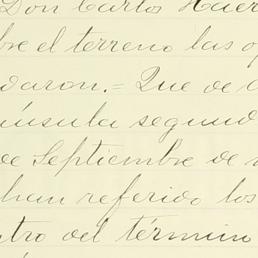 Don Carlos Haer
bre el terreno las op
daron.= Que de a
ínsula segund
de Septiembre de
han referido los
tro del términ